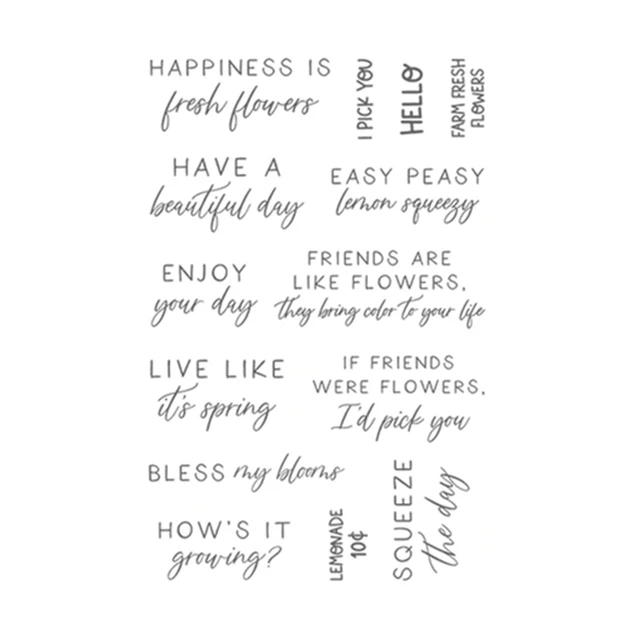 HAPPINESS IS
fresh flowers
I PICK YOU
HELLO
FARM FRESH
FLOWERS
HAVE A
beautiful day
EASY PEASY
lemon squeezy
ENJOY
your day
FRIENDS ARE
LIKE FLOWERS,
they bring color to your life
LIVE LIKE
it's spring
IF FRIENDS
WERE FLOWERS,
I'd pick you
BLESS my blooms
HOW'S IT
growing?
LEMONADE
10¢
SQUEEZE
the day